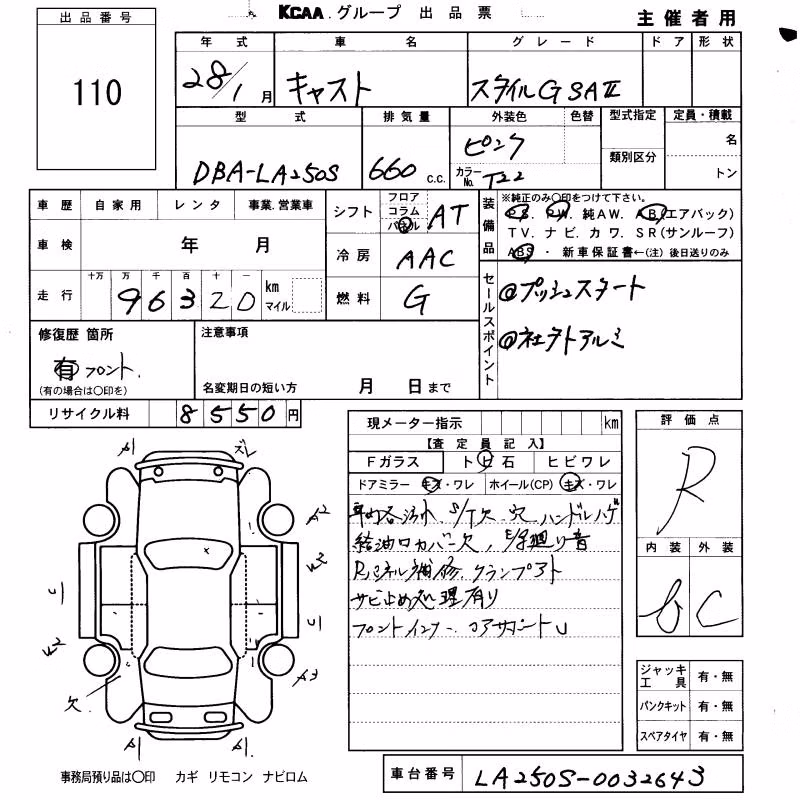 KCAA グループ 出品票
主催者用
出品番号
110
年式 車名 グレード ドア 形状
28/1月 キャスト スタイルG SAⅡ
型式 排気量 外装色 色替 型式指定 定員・積載
DBA-LA250S 660 c.c. ピンク カラーNo. T22 類別区分 名 トン
車歴 自家用 レンタ 事業.営業車
車検 年 月
走行 十万 万 千 百 十 一 km マイル
96320
シフト フロア コラム パネル AT
冷房 AAC
燃料 G
装備品 ※純正のみ〇印をつけて下さい。
PS. PW. 純AW. AB(エアバック)
TV. ナビ. カワ. SR(サンルーフ)
ABS ・ 新車保証書←(注) 後日送りのみ
セールスポイント
@プッシュスタート
@社外アルミ
修復歴 箇所
有 フロント.
(有の場合は〇印を)
注意事項
名変期日の短い方 月 日まで
リサイクル料 8550円
現メーター指示 km
【査定員記入】
Fガラス ト ビ 石 ヒビワレ
ドアミラー キズ・ワレ ホイール(CP) キズ・ワレ
車内各汚れ S/T欠 穴 ハンドルハゲ
給油口カバー欠
Rパネル補修. クランプアト
サビ止め処理有り
フロントインナー. コアサポートU
評価点
R
内装 外装
b C
ジャッキ工具 有・無
パンクキット 有・無
スペアタイヤ 有・無
A1
ズレ
A2
U
U
A3
欠
A1
A1
事務局預り品は〇印 カギ リモコン ナビロム
車台番号 LA250S-0032643